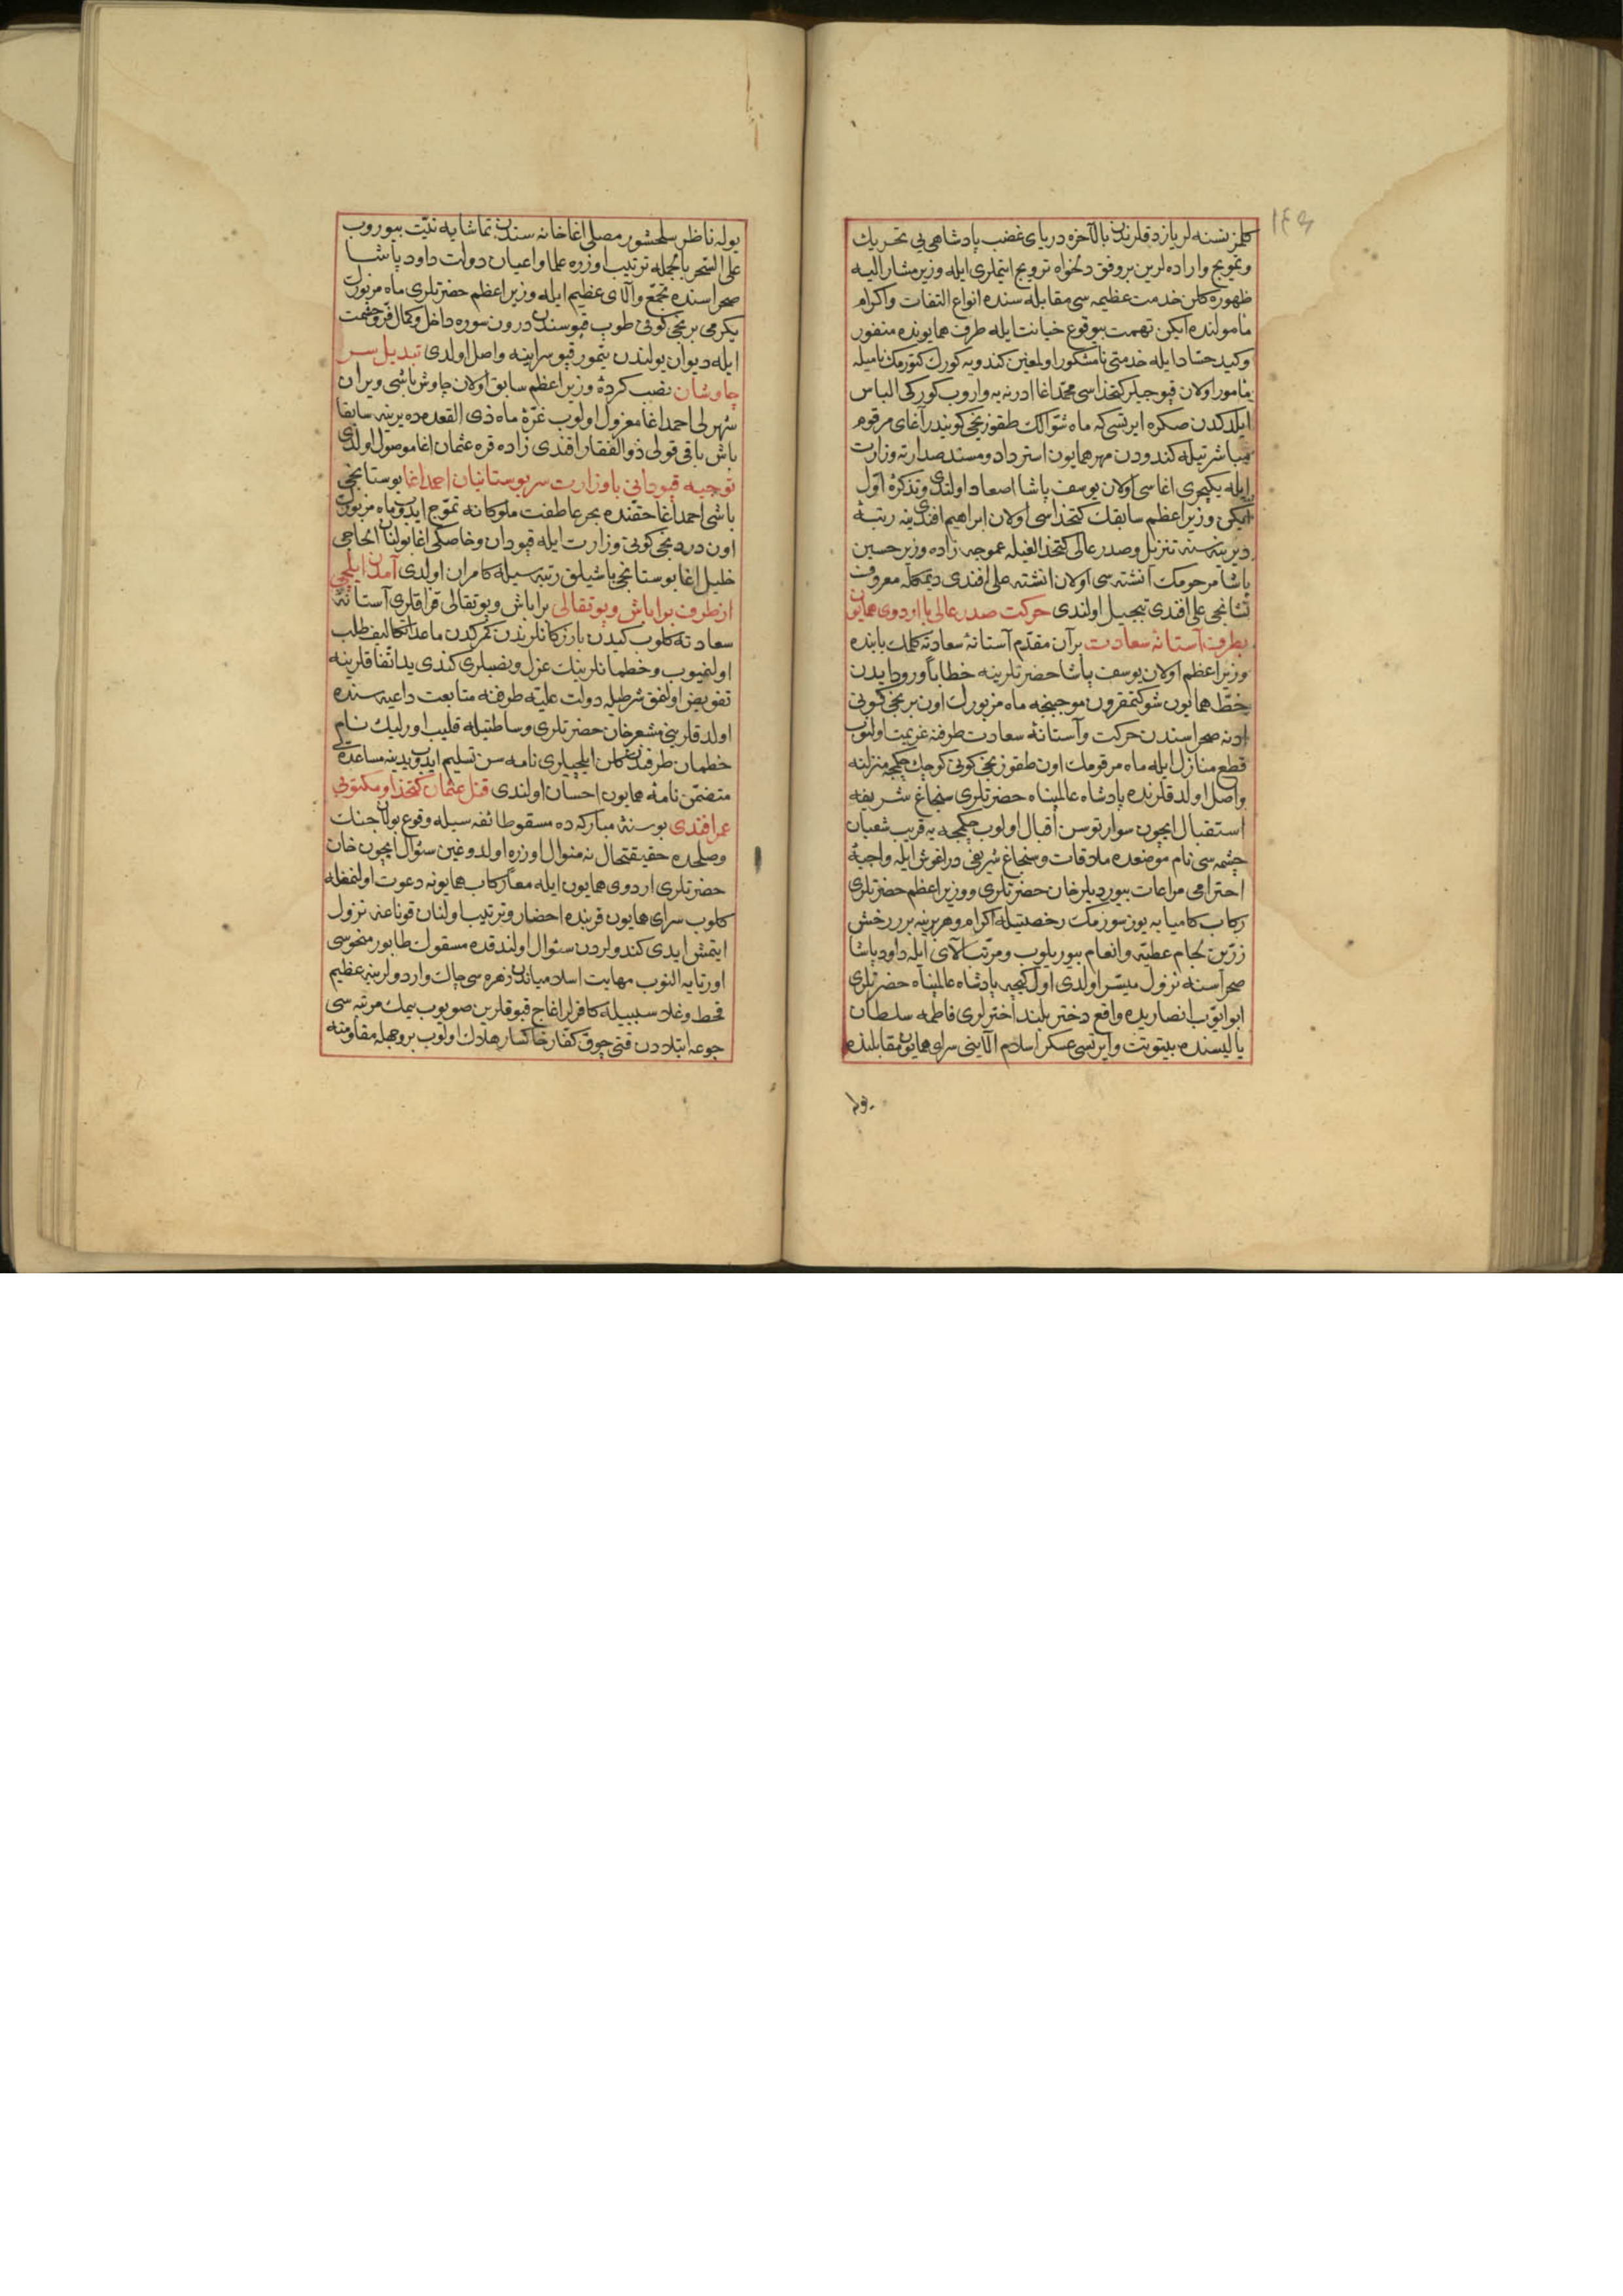 ١٤٩
كلمز نسنه لر يازدقلرندن بالآخره درياى غضب پادشاهى يى تحريك
و تمويج و اراده لرين بر وفق دلخواه ترويج ايتملرى ايله وزير مشار اليه
ظهوره كلن خدمت عظيمه سى مقابله سنده انواع التفات و اكرام
مأمولنده ايكن تهمت بيوقوع خيانت ايله طرف همايونده منفور
و كيد حسّاد ايله خدمتى نامشكور اولمغين كندويه كورك كتورمك ناميله
مأمور اولان قپوجيلر كتخداسى محمد اغا ادرنه يه واروب كوركى الباس
ايلدكدن صكره ايرتسى كه ماه شوالك طقوزنجى كونيدر آغاى مرقوم
مباشرتيله كندودن مهر همايون استرداد و مسند صدارته وزارت
ايله يكيچرى اغاسى اولان يوسف پاشا اصعاد اولندى و تذكرۀ اول
ايكن وزير اعظم سابقك كتخداسى اولان ابراهيم افندى ينه رتبۀ
ديرينه سنه تنزيل و صدر عالى كتخدالغيله عموجه زاده وزير حسين
پاشا مرحومك انشته سى اولان انشته على افندى ديمكله معروف
نشانجى على افندى تبجيل اولندى حركت صدر عالى با اردوى همايون
بطرف آستانۀ سعادت بر آن مقدم آستانۀ سعادته كلمك بابنده
وزير اعظم اولان يوسف پاشا حضرتلرينه خطاباً ورود ايدن
خط همايون شوكتمقرون موجبنجه ماه مزبورك اون برنجى كونى
ادنه صحراسندن حركت و آستانۀ سعادت طرفنه عزيمت اولنوب
قطع منازل ايله ماه مرقومك اون طقوزنجى كونى كوچك چكمجه منزلنه
واصل اولدقلرنده پادشاه عالمپناه حضرتلرى سنجاغ شريفه
استقبال ايچون سوار توسن اقبال اولوب چكمجه يه قريب شعبان
چشمه سى نام موضعده ملاقات و سنجاغ شريفى در اغوش ايله واجبۀ
احترامى مراعات بيورديلر خان حضرتلرى و وزير اعظم حضرتلرى
ركاب كاميابه يوز سورمك رخصتيله اكرام و هر برينه برر رخش
زرّين لجام عطيّه و انعام بيوريلوب و مرتب آلاى ايله داود پاشا
صحراسنه نزول ميسّر اولدى اول كيجه پادشاه عالمپناه حضرتلرى
ابو ايّوب انصاريده واقع دختر بلند اخترلرى فاطمه سلطان
ياليسنده بيتوتت و ايرتسى عسكر اسلام آلاينى سراى همايون مقابلنده
يوله
يوله ناظر سلحشور مصلى اغا خانه سندن تماشايه نيّت بيوروب
على السحر بالجمله ترتيب اوزره علما و اعيان دولت داود پاشا
صحراسنده تجمّع و آلاى عظيم ايله وزير اعظم حضرتلرى ماه مزبورك
يكرمى برنجى كونى طوپ قپوسندن درون سوره داخل و كمال فرّ و حشمت
ايله ديوان يولندن تيمور قپو سراينه واصل اولدى تبديل سر
چاوشان نصب كردۀ وزير اعظم سابق اولان چاوش باشى ويران
شهرلى احمد اغا معزول اولوب غرۀ ماه ذى القعده ده يرينه سابقا
باش باقى قولى ذو الفقار افندى زاده قره عثمان اغا موصول اولدى
توجيه قپودانى با وزارت سر بوستانيان احمد اغا بوستانجى
باشى احمد اغا حقنده بحر عاطفت ملوكانه تموّج ايدوب ماه مزبورك
اون دردنجى كونى وزارت ايله قپودان و خاصكى اغا بولنان الحاجى
خليل اغا بوستانجى باشيلق رتبه سيله كامران اولدى آمدن ايلچى
از طرف براباش و پوتقالى براباش و پوتقالى قزاقلرى آستانۀ
سعادته كلوب كيدن بازركانلرندن كمركدن ماعدا تكاليف طلب
اولنميوب و خطمانلرينك عزل و نصبلرى كندى يد اتفاقلرينه
تفويض اولنمق شرطيله دولت عليّه طرفنه متابعت داعيه سنده
اولدقلرينى مشعر خان حضرتلرى وساطتيله قليب اورليك نام
خطمان طرفندن كلن ايلچيلرى نامه سن تسليم ايدوب يدينه مساعده يى
متضمّن نامۀ همايون احسان اولندى قتل عثمان كتخدا و مكتوبى
عمر افندى بو سنۀ مباركه ده مسقو طائفه سيله وقوع بولان جنك
و صلحده حقيقتحال نه منوال اوزره اولدوغين سئوال ايچون خان
حضرتلرى اردوى همايون ايله معاً ركاب همايونه دعوت اولنمغله
كلوب سراى همايون قربنده احضار و ترتيب اولنان قوناغنه نزول
ايتمش ايدى كندولردن سئوال اولندقده مسقوك طابور منحوسى
اورتايه النوب مهابت اسلاميان زهره سى چاك و اردولرينه عظيم
قحط و غلا سببيله كافرلر اغاج قبوقلرين صويوب يمك مرتبه سى
جوعه ابتلادن قتى چوق كفار خاكسار هلاك اولوب بر وجهله مقاومته